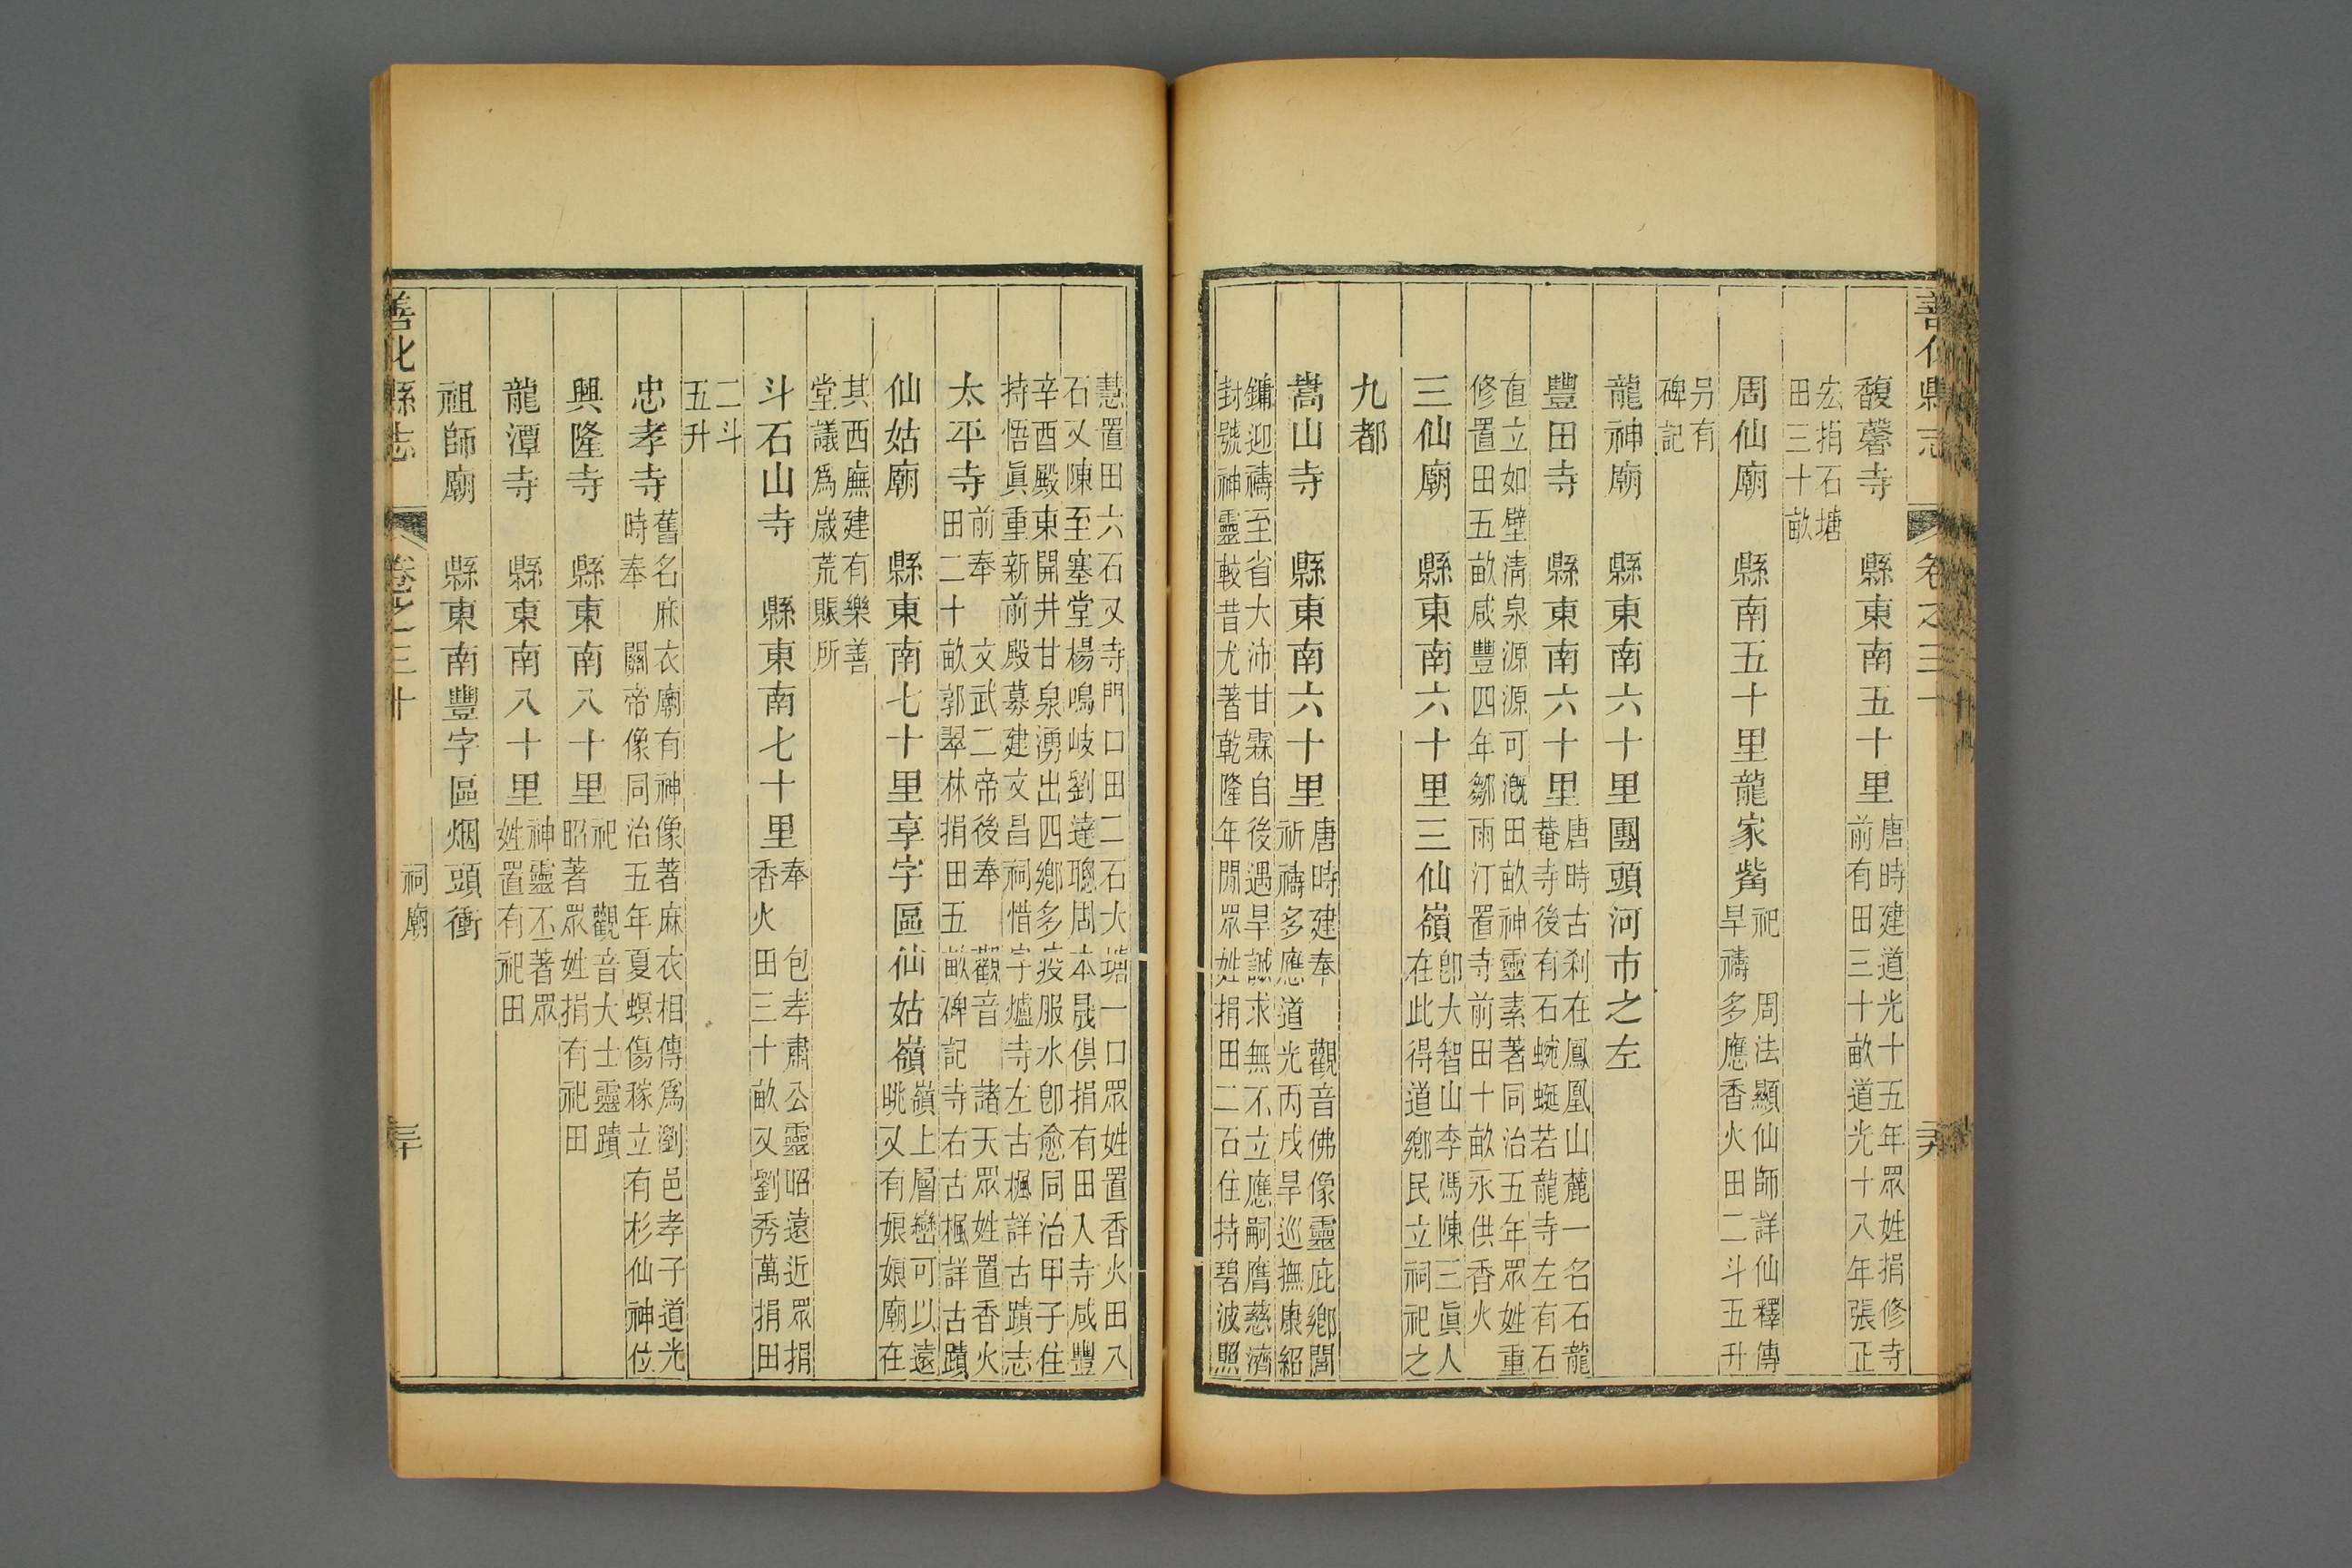 善化縣志 卷之三十 卅九
馥馨寺 縣東南五十里 唐時建道光十五年眾姓捐修寺
前有田三十畝道光十八年張正
宏捐石塘
田三十畝
周仙廟 縣南五十里龍家觜 祀 周法顯仙師詳仙釋傳
旱禱多應香火田二斗五升
另有
碑記
龍神廟 縣東南六十里團頭河市之左
豐田寺 縣東南六十里 唐時古刹在鳳凰山麓一名石龍
菴寺後有石蜿蜒若龍寺左有石
直立如壁清泉源源可溉田畝神靈素著同治五年眾姓重
修置田五畝咸豐四年鄒雨汀置寺前田十畝永供香火
三仙廟 縣東南六十里三仙嶺 卽大智山李馮陳三眞人
在此得道鄉民立祠祀之
九都
嵩山寺 縣東南六十里 唐時建奉 觀音佛像靈庇鄉閭
祈禱多應道光丙戌旱巡撫康紹
鏞迎禱至省大沛甘霖自後遇旱誠求無不立應嗣膺慈濟
封號神靈較昔尤著乾隆年閒眾姓捐田二石住持碧波照
慧置田六石又寺門口田二石大塘一口眾姓置香火田入
石又陳至塞堂楊鳴岐劉達聰周本晟俱捐有田入寺咸豐
辛酉殿東開井甘泉湧出四鄉多疫服水卽愈同治甲子住
持悟眞重新前殿募建文昌祠惜字爐寺左古楓詳古蹟志
太平寺 前奉 文武二帝後奉 觀音 諸天眾姓置香火
田二十畝郭翠林捐田五畝碑記寺右古楓詳古蹟
仙姑廟 縣東南七十里享字區仙姑嶺 嶺上層巒可以遠
眺又有娘娘廟在
其西廡建有樂善
堂議爲嵗荒賬所
斗石山寺 縣東南七十里 奉 包孝肅公靈昭遠近眾捐
香火田三十畝又劉秀萬捐田
二斗
五升
忠孝寺 舊名麻衣廟有神像著麻衣相傳爲瀏邑孝子道光
時奉 關帝像同治五年夏螟傷稼立有杉仙神位
興隆寺 縣東南八十里 祀 觀音大士靈蹟
昭著眾姓捐有祀田
龍潭寺 縣東南八十里 神靈丕著眾
姓置有祀田
祖師廟 縣東南豐字區烟頭衝
善化縣志 卷之三十 祠廟 三十